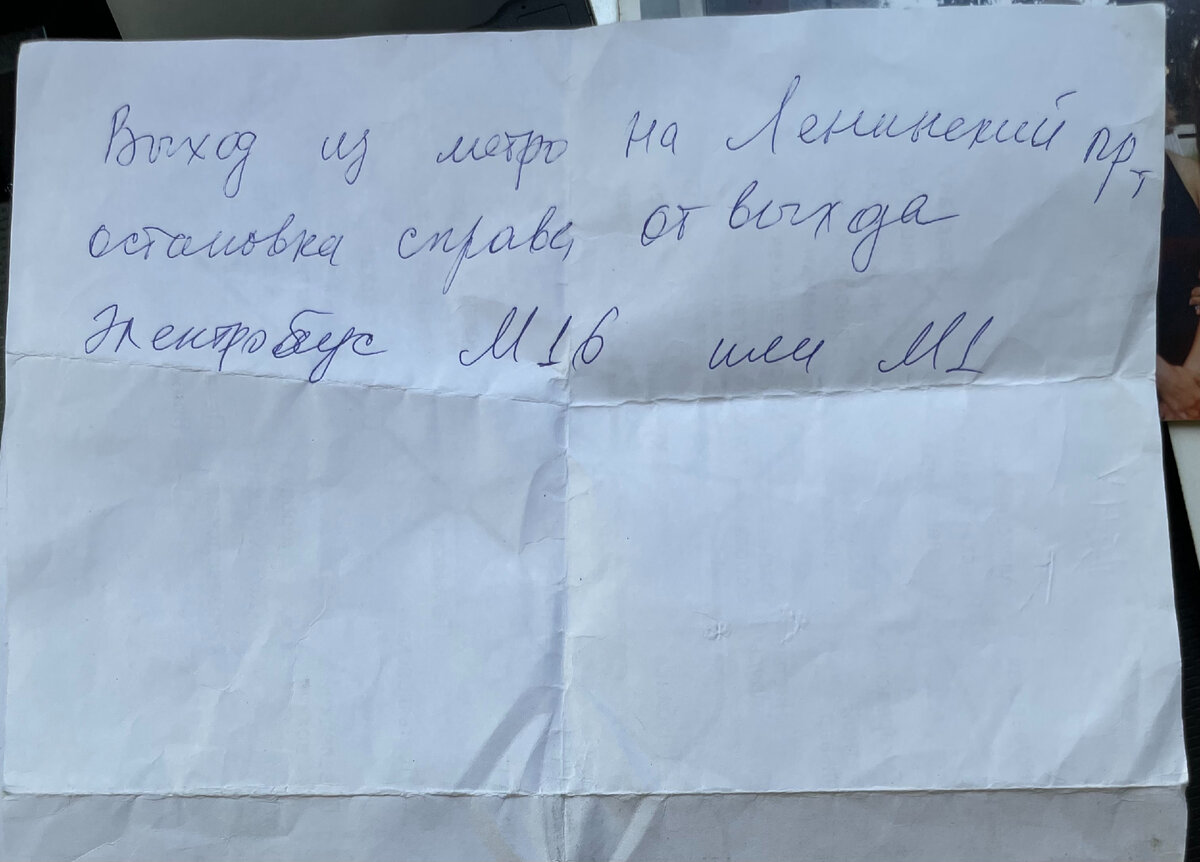 Выход из метро на Ленинский пр т
остановка справа от выхода
Электробус М16 или М1